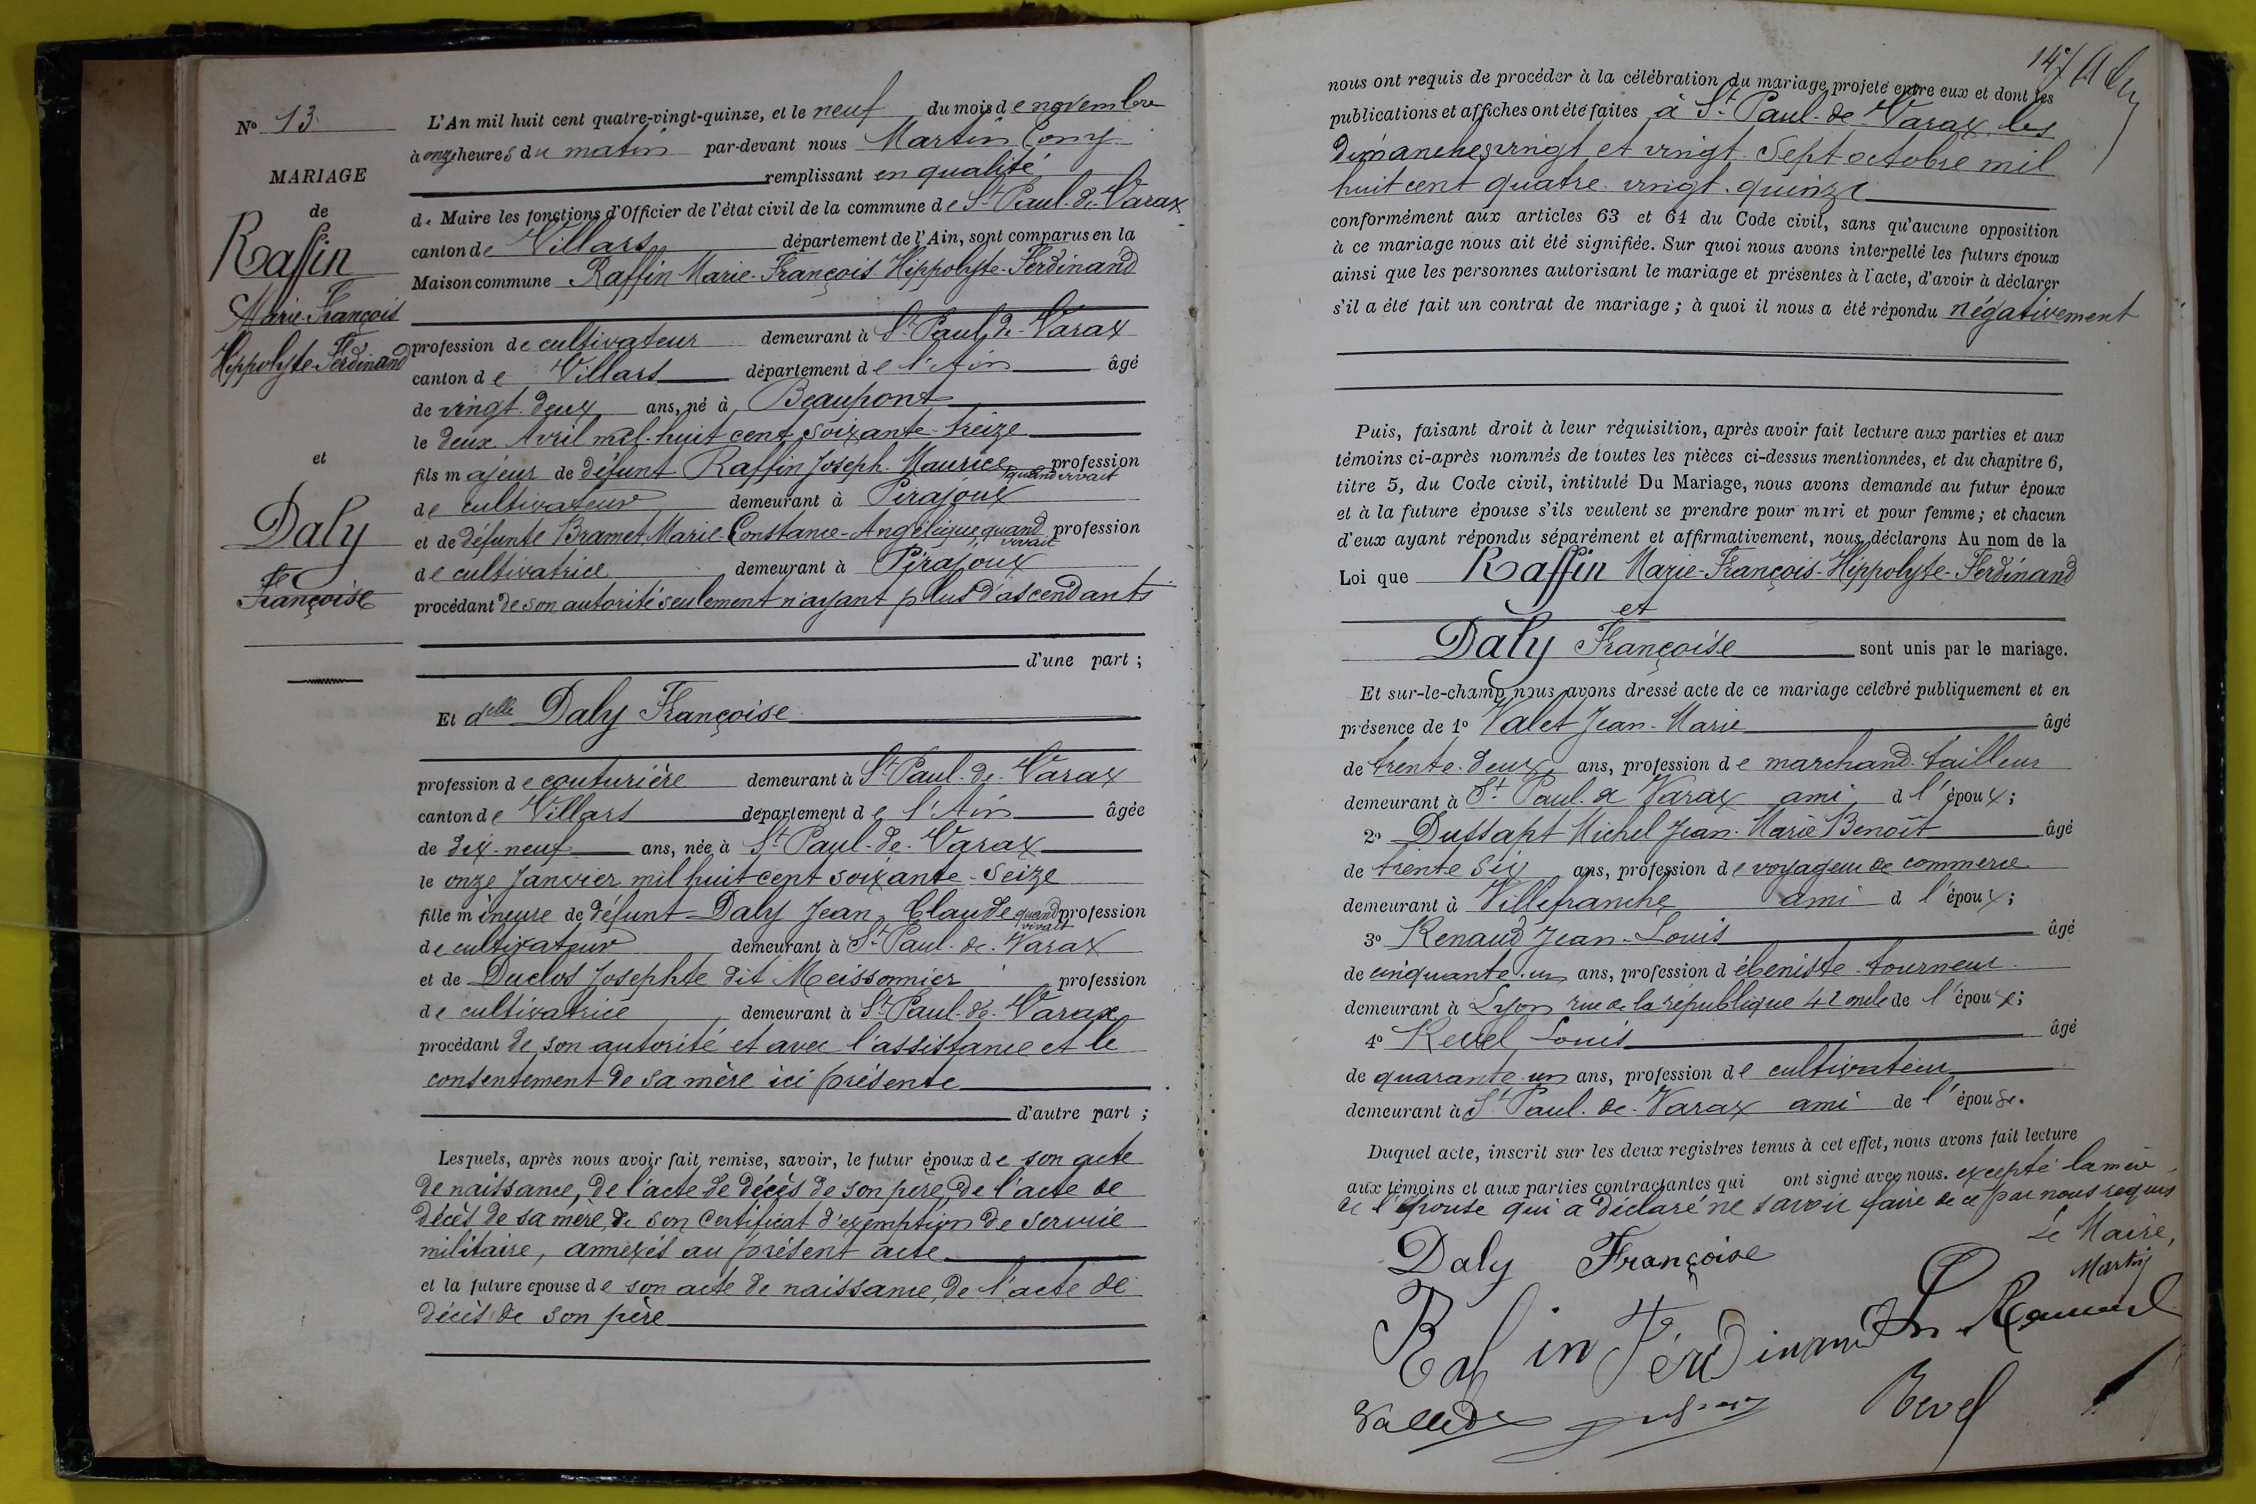 Nº 13
MARIAGE
de
Raffin
Marie-François
Hippolyte-Ferdinand
et
Daly
Françoise
L'An mil huit cent quatre-vingt-quinze, et le neuf du mois de novembre
à onze heures du matin par-devant nous Martin Cony
remplissant en qualité
de Maire les fonctions d'Officier de l'état civil de la commune de St Paul-de-Varax
canton de Villars département de l'Ain, sont comparus en la
Maison commune Raffin Marie-François Hippolyte-Ferdinand
profession de cultivateur demeurant à St Paul-de-Varax
canton de Villars département de l'Ain âgé
de vingt-deux ans, né à Beaupont
le deux Avril mil-huit cent soixante-treize
fils majeur de défunt Raffin Joseph-Maurice quand vivait profession
de cultivateur demeurant à Pirajoux
et de défunte Bramet Marie-Constance-Angélique quand vivait profession
de cultivatrice demeurant à Pirajoux
procédant de son autorité seulement n'ayant plus d'ascendants
d'une part ;
Et delle Daly Françoise
profession de couturière demeurant à St Paul-de-Varax
canton de Villars département de l'Ain âgée
de dix-neuf ans, née à St Paul-de-Varax
le onze Janvier mil huit cent soixante-seize
fille mineure de défunt Daly Jean-Claude quand vivait profession
de cultivateur demeurant à St Paul-de-Varax
et de Duclos Josephte dit Meissonnier profession
de cultivatrice demeurant à St Paul-de-Varax
procédant de son autorité et avec l'assistance et le
consentement de sa mère ici présente
d'autre part ;
Lesquels, après nous avoir fait remise, savoir, le futur époux de son acte
de naissance, de l'acte de décès de son père, de l'acte de
décès de sa mère, de son certificat d'exemption de service
militaire, annexés au présent acte
et la future epouse de son acte de naissance, de l'acte de
décès de son père
147
nous ont requis de procéder à la célébration du mariage projeté entre eux et dont les
publications et affiches ont été faites à St Paul-de-Varax les
dimanches vingt et vingt-sept octobre mil
huit cent quatre-vingt-quinze
conformément aux articles 63 et 64 du Code civil, sans qu'aucune opposition
à ce mariage nous ait été signifiée. Sur quoi nous avons interpellé les futurs époux
ainsi que les personnes autorisant le mariage et présentes à l'acte, d'avoir à déclarer
s'il a été fait un contrat de mariage ; à quoi il nous a été répondu négativement
Puis, faisant droit à leur réquisition, après avoir fait lecture aux parties et aux
témoins ci-après nommés de toutes les pièces ci-dessus mentionnées, et du chapitre 6,
titre 5, du Code civil, intitulé Du Mariage, nous avons demandé au futur époux
et à la future épouse s'ils veulent se prendre pour mari et pour femme ; et chacun
d'eux ayant répondu séparément et affirmativement, nous déclarons Au nom de la
Loi que Raffin Marie-François-Hippolyte-Ferdinand
et
Daly Françoise sont unis par le mariage.
Et sur-le-champ nous avons dressé acte de ce mariage célébré publiquement et en
présence de 1º Valet Jean-Marie âgé
de trente-deux ans, profession de marchand-tailleur
demeurant à St Paul-de Varax ami d l'époux ;
2º Dussapt Michel Jean-Marie Benoît âgé
de trente six ans, profession de voyageur de commerce
demeurant à Villefranche ami d l'époux ;
3º Renaud Jean-Louis âgé
de cinquante-un ans, profession d'ébeniste-tourneur
demeurant à Lyon rue de la république 42 oncle de l'époux ;
4º Revel Louis âgé
de quarante-un ans, profession de cultivateur
demeurant à St Paul-de-Varax ami de l'épouse.
Duquel acte, inscrit sur les deux registres tenus à cet effet, nous avons fait lecture
aux témoins et aux parties contractantes qui ont signé avec nous. excepté la mère
de l'épouse qui a déclaré ne savoir faire de ce par nous requis
Le Maire,
Martin
Daly Françoise
Rafin Férdinand
Renaud
Revel